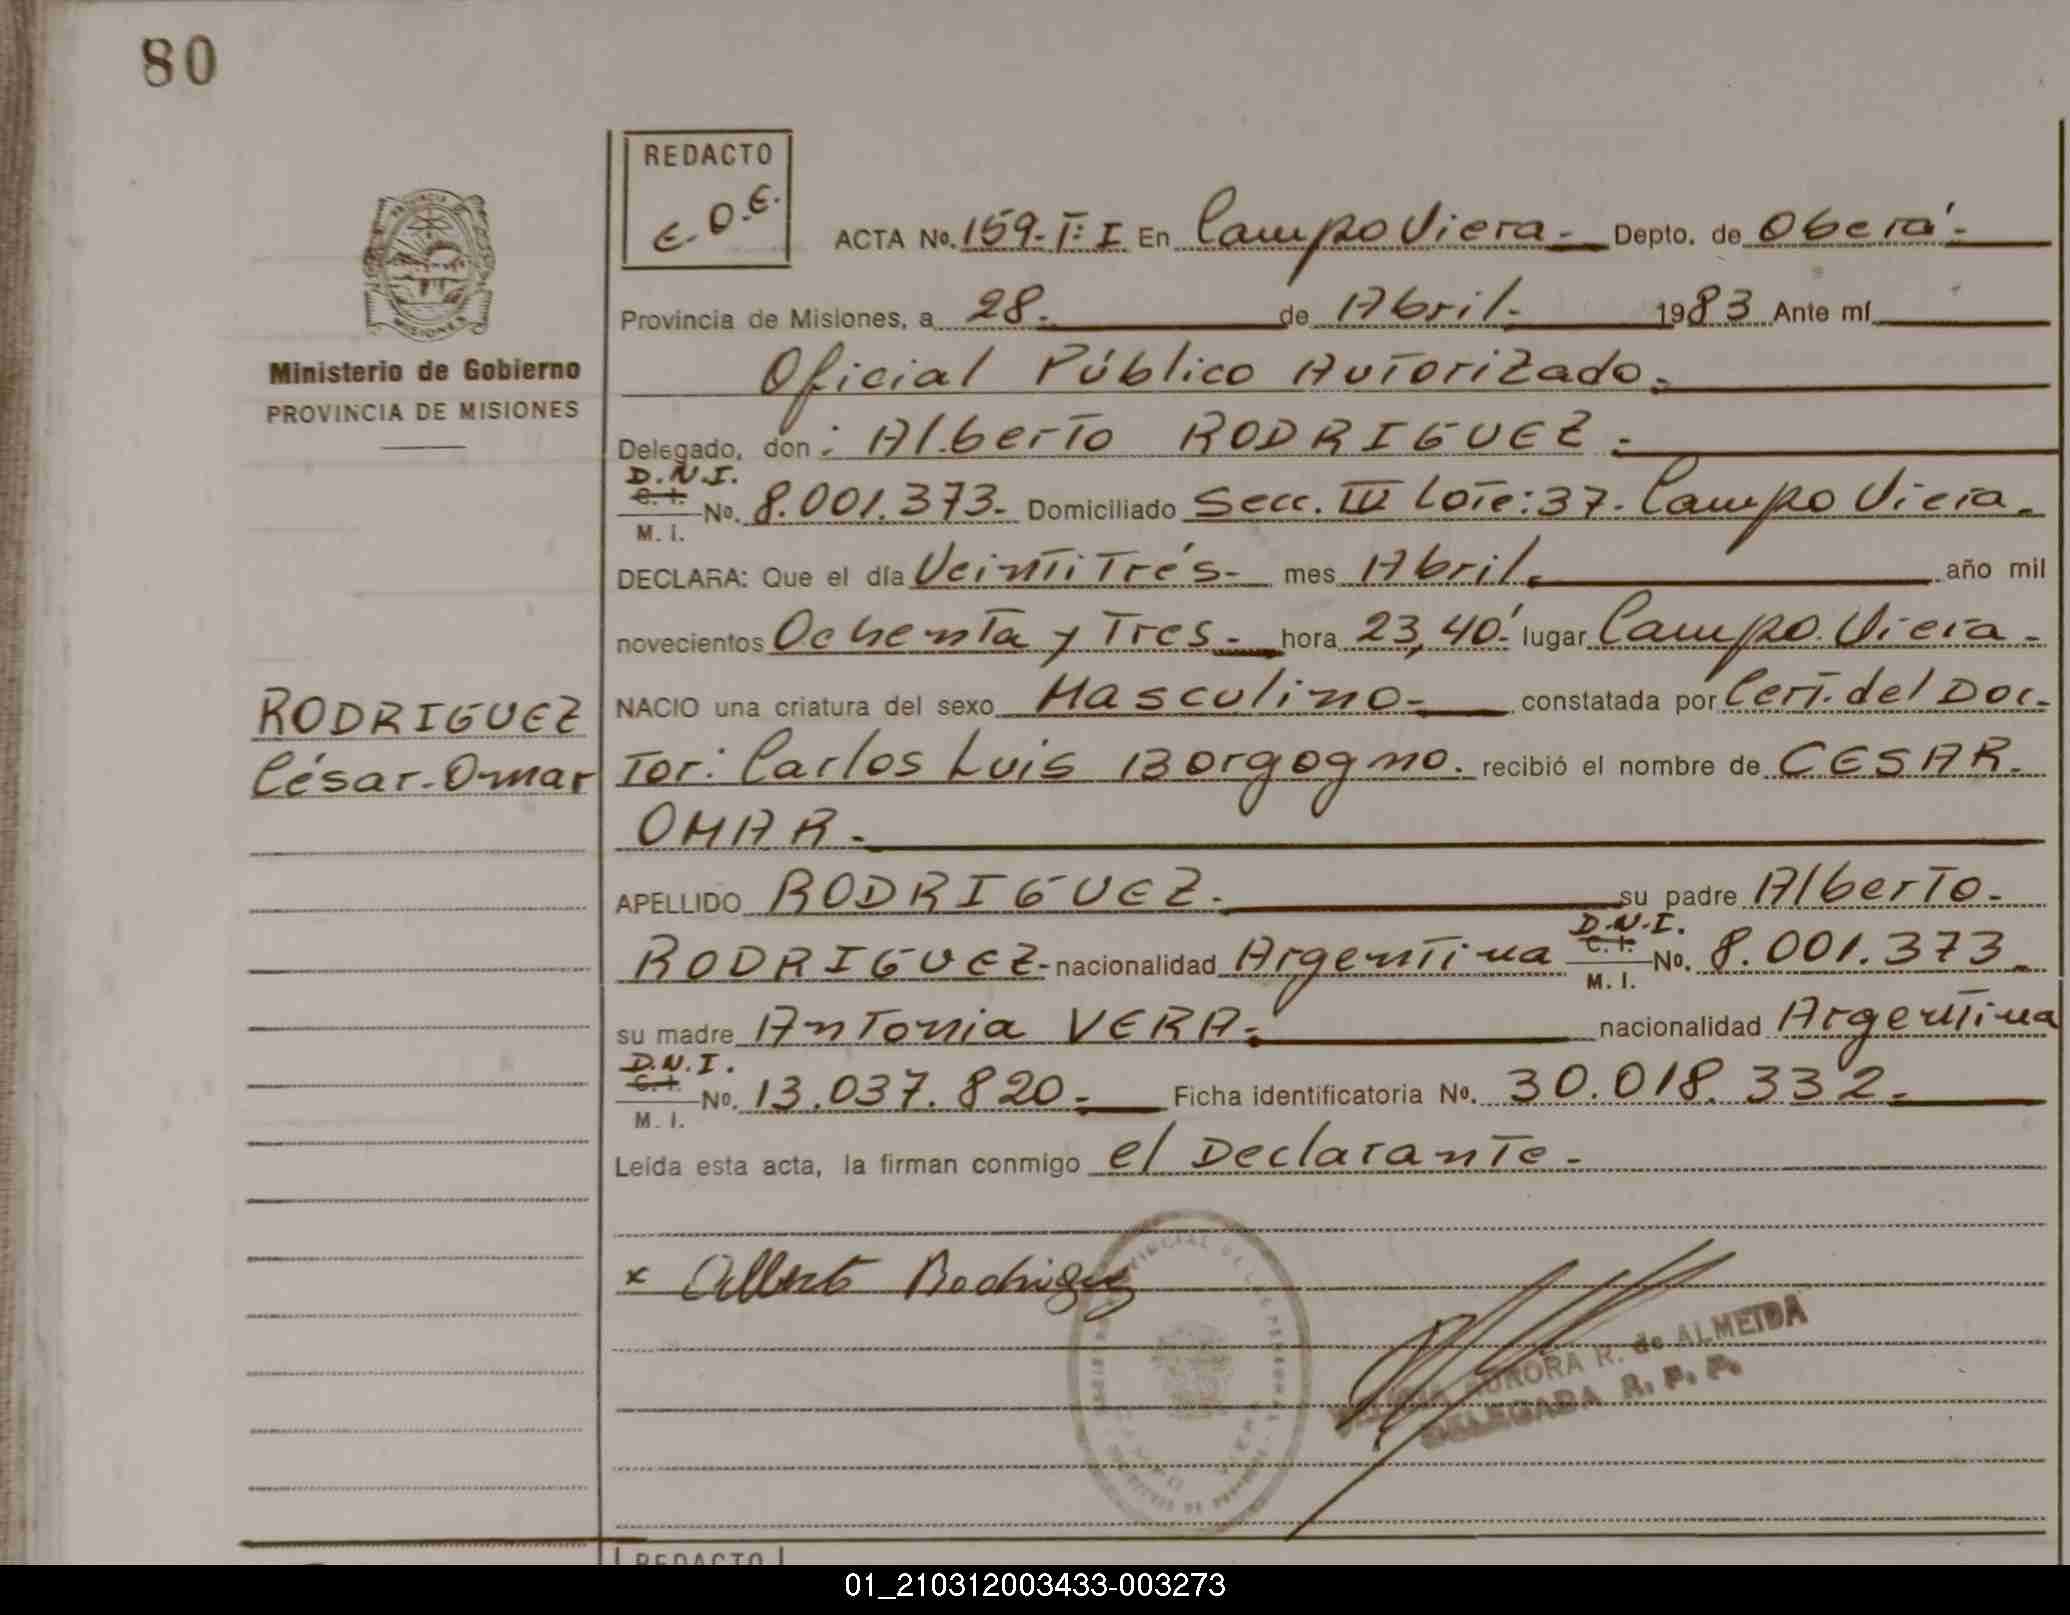 80
REDACTO
E.O.E.
PROVINCIA
MISIONES
Ministerio de Gobierno
PROVINCIA DE MISIONES
ACTA No. 159-T: I En Campo Viera.- Depto. de Oberá.-
Provincia de Misiones, a 28. de Abril. 1983 Ante mí
Oficial Público Autorizado.
Delegado, don: Alberto RODRIGUEZ.
D.N.I.
C. I.
M. I. No. 8.001.373.- Domiciliado Secc. III Lote: 37. Campo Viera.
DECLARA: Que el día Veintitrés- mes Abril. año mil
novecientos Ochenta y Tres.- hora 23,40'. lugar Campo Viera.-
RODRIGUEZ
César-Omar
NACIO una criatura del sexo Masculino.- constatada por Cert. del Doc-
tor: Carlos Luis Borgogno. recibió el nombre de CESAR.
OMAR.-
APELLIDO RODRIGUEZ. su padre Alberto.-
RODRIGUEZ- nacionalidad Argentina D.N.I. C. I. M. I. No. 8.001.373.
su madre Antonia VERA.- nacionalidad Argentina
D.N.I.
C. I.
M. I. No. 13.037.820.- Ficha identificatoria No. 30.018.332.-
Leída esta acta, la firman conmigo el Declarante.-
x Alberto Rodriguez
AURORA R. de ALMEIDA
DELEGADA R. P. P.
REDACTO
01_210312003433-003273